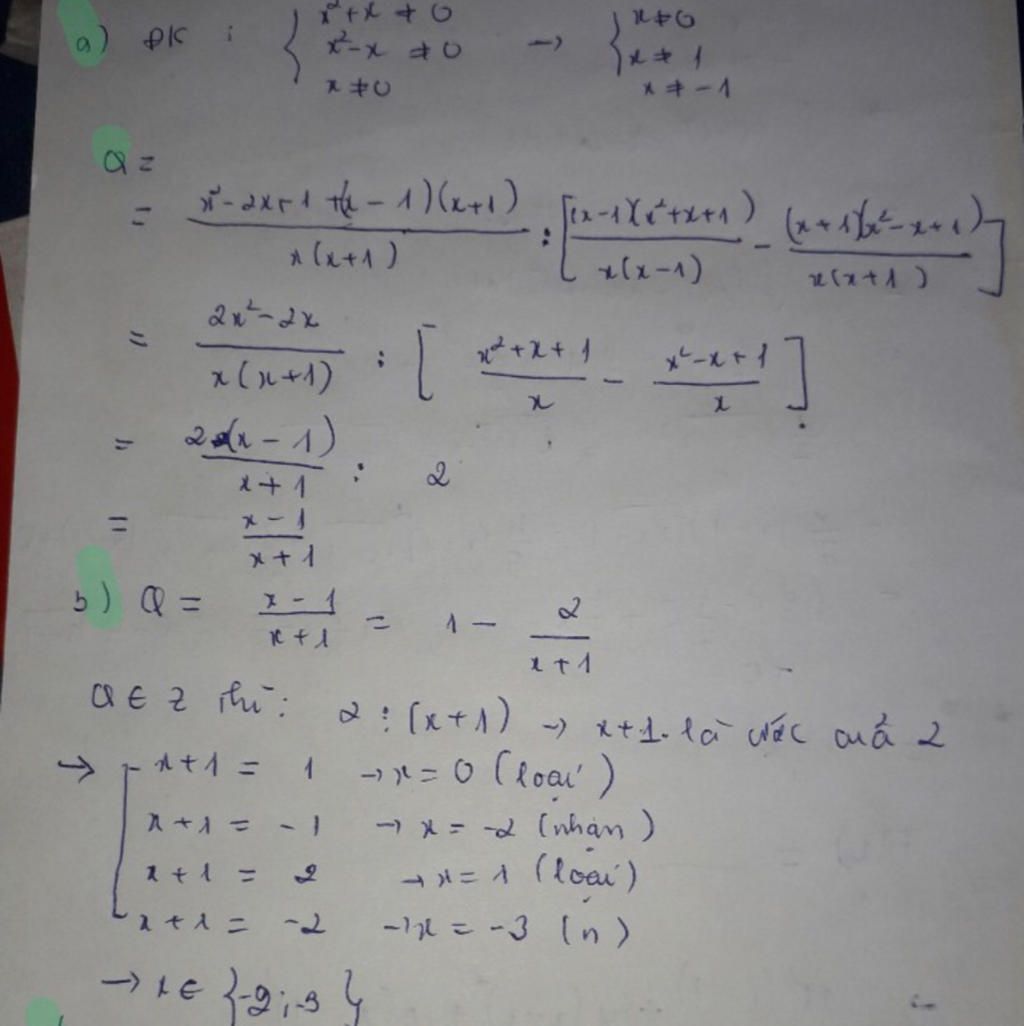 a) ĐK : { x²+x ≠ 0
x²-x ≠ 0
x ≠ 0 → { x ≠ 0
x ≠ 1
x ≠ -1
Q =
= x²-2x+1+(x-1)(x+1) / x(x+1) : [ (x-1)(x²+x+1) / x(x-1) - (x+1)(x²-x+1) / x(x+1) ]
= 2x²-2x / x(x+1) : [ x²+x+1 / x - x²-x+1 / x ]
= 2(x-1) / x+1 : 2
= x-1 / x+1
b) Q = x-1 / x+1 = 1 - 2 / x+1
Q ∈ Z thì: 2 ⋮ (x+1) → x+1 là ước của 2
→ [ x+1 = 1 → x = 0 (loại)
x+1 = -1 → x = -2 (nhận)
x+1 = 2 → x = 1 (loại)
x+1 = -2 → x = -3 (n)
→ x ∈ {-2; -3}